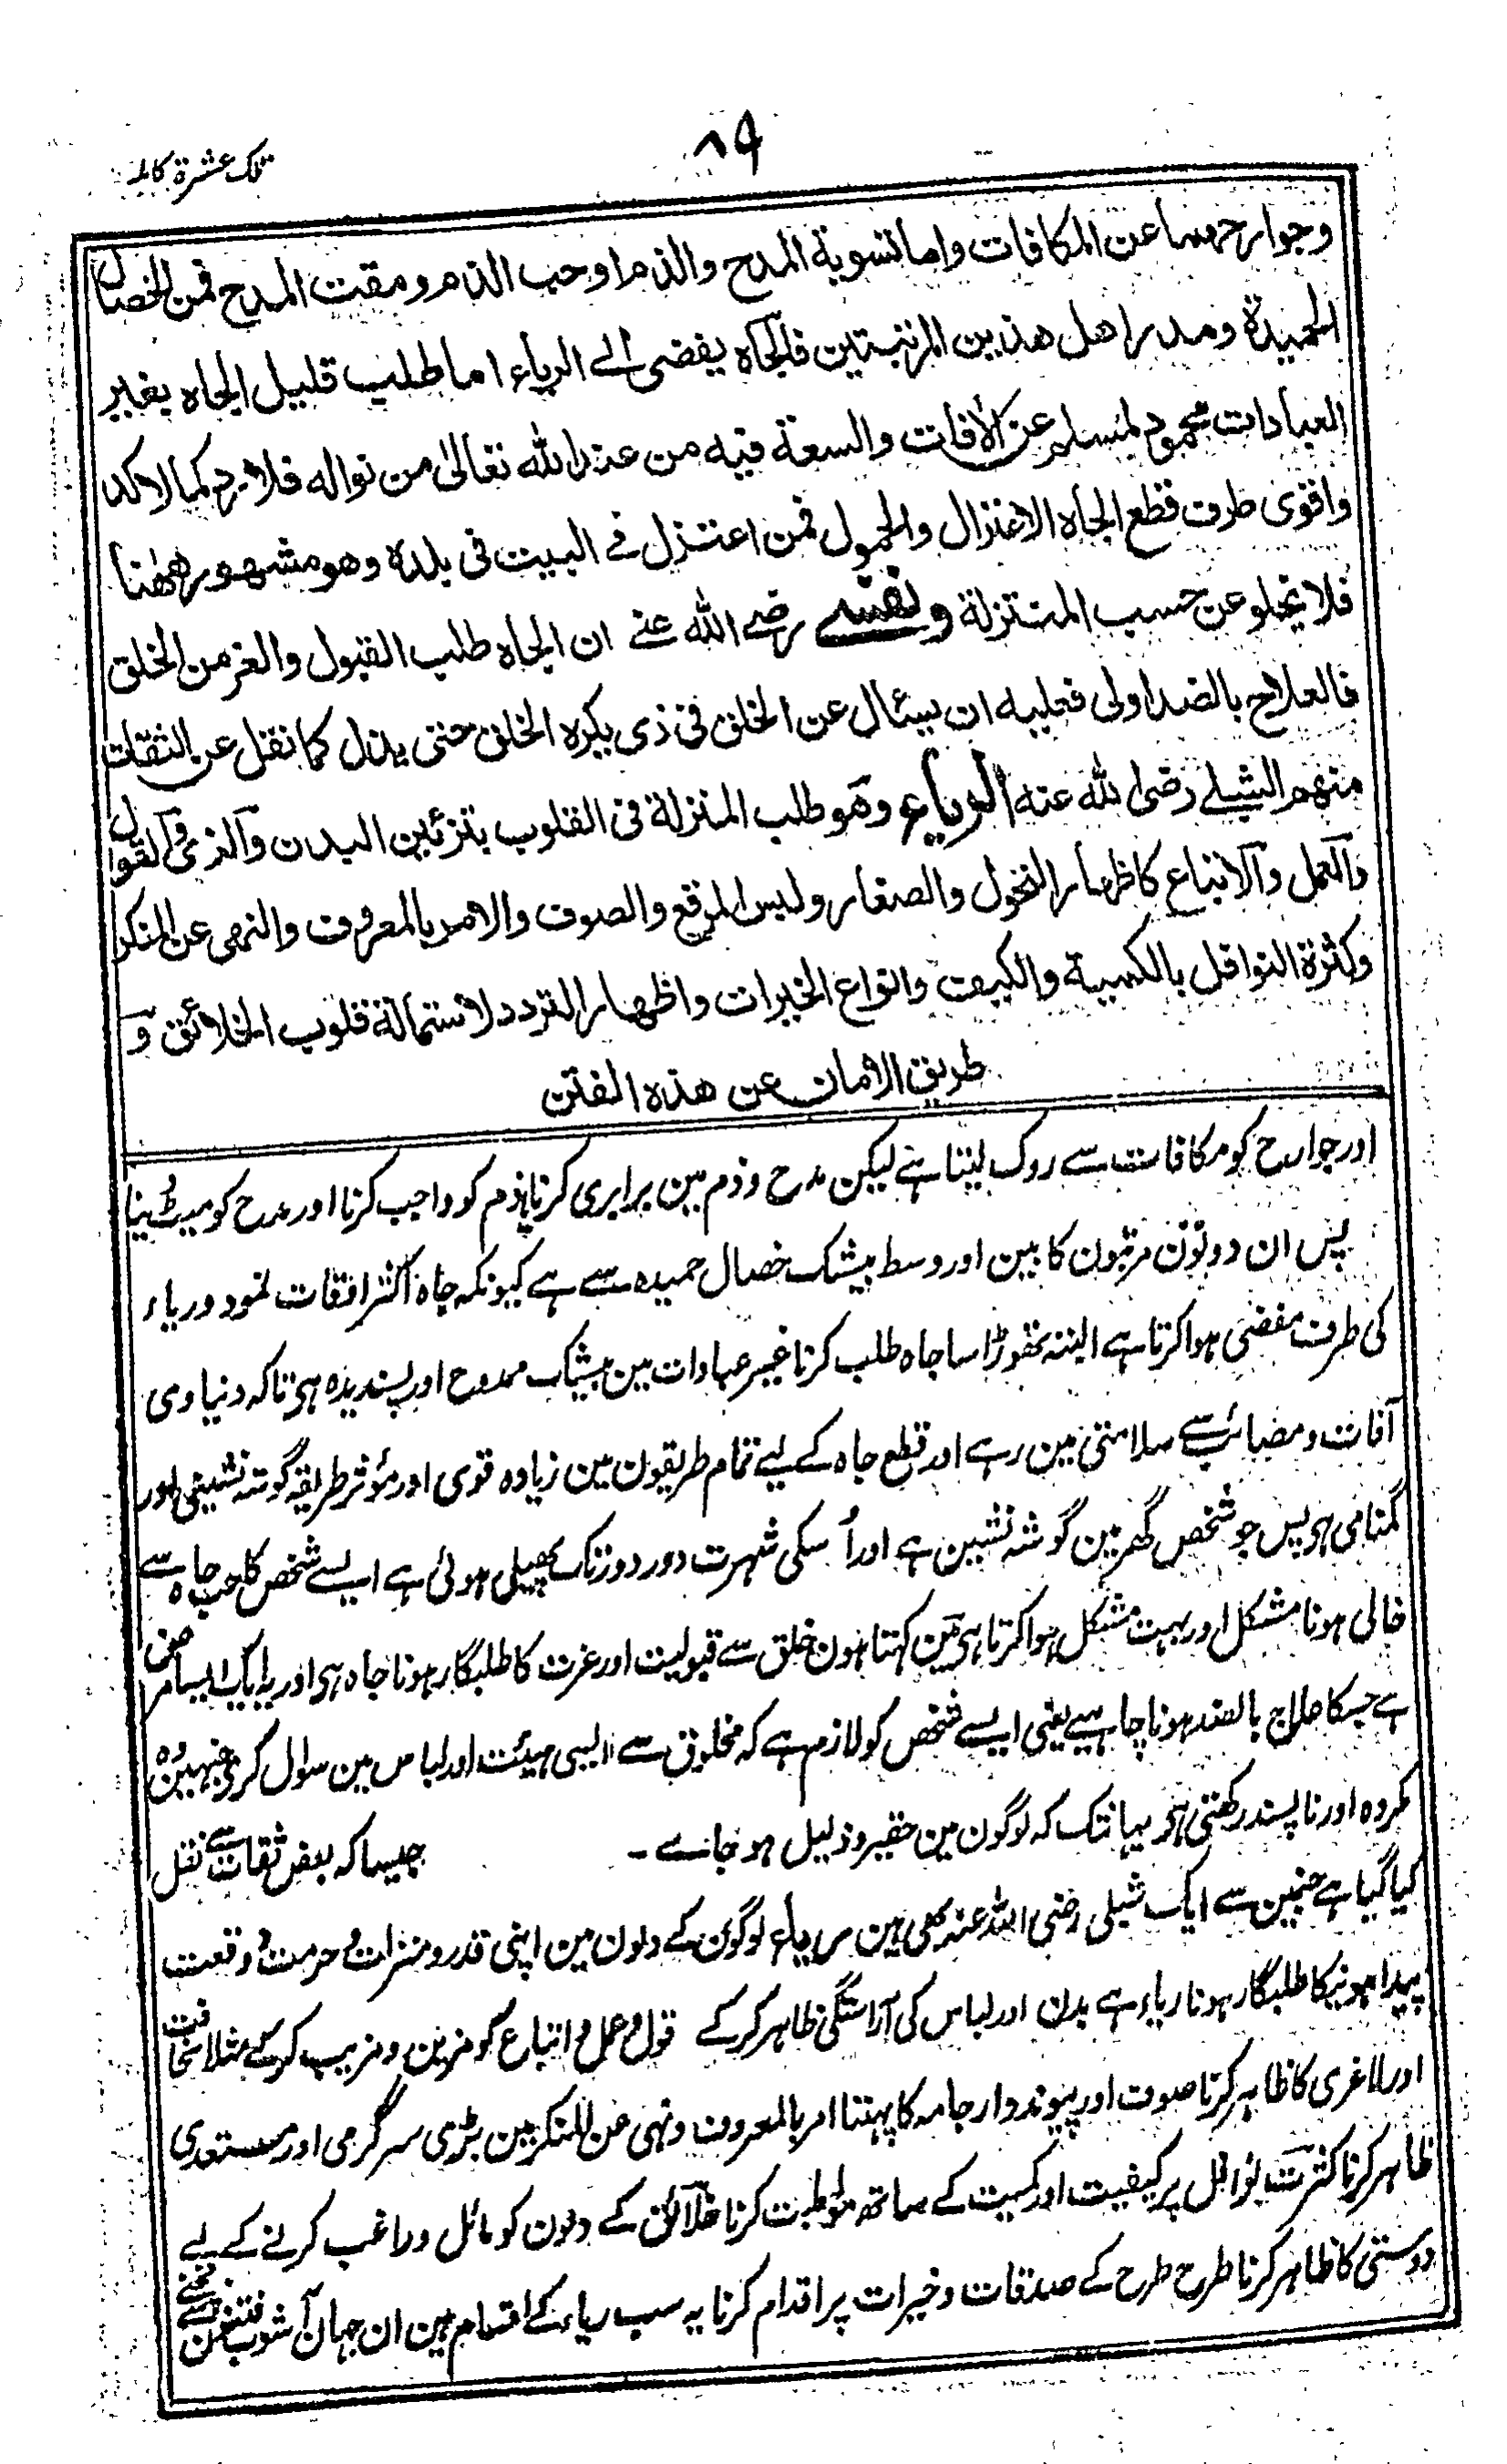 ۸۹
تلک عشرۃ کاملہ
وجوارحهما عن المکافات واما تسویة المدح والذم او حب الذم ومقت المدح فمن الخصال
الحمیدة ومدر اهل هذین المرتبتین فالجاه یفضی الی الریاء اما طلب قلیل الجاه بغیر
العبادات محمود لیسلم عن الآفات والسعة فیه من عند الله تعالیٰ من نواله فلا یرد کما لا کد
واقوی طرف قطع الجاه الاعتزال والخمول فمن اعتزل فے البیت فی بلدة وهو مشهور ههنا
فلا یخلو عن حسب المنتزلة ونفسے رضے الله عنے ان الجاه طلب القبول والعز من الخلق
فالعلاج بالضد اولی فعلیه ان یسئال عن الخلق فی ذی یکره الخلق حتی یذل کما نقل عن الثقات
منهم الشبلے رضی الله عنه الریاء وهو طلب المنزلة فی القلوب بتزئین البدن والذی والقول
والعمل والاتباع کاظهار النحول والصفار ولبس المرقع والصوف والامر بالمعروف والنهی عن المنکر
وکثرة النوافل بالکمیة والکیف وانواع الخیرات واظهار التردد لاستمالة قلوب الخلائق و
طریق الامان عن هذه الفتن
اور جوارح کو مکافات سے روک لینا ہے لیکن مدح وذم مین برابری کرنا یا ذم کو واجب کرنا اور مدح کو میٹ دینا
پس ان دونون مرتبون کا بین اور وسط بیشک خصال حمیدہ سے ہے کیونکہ جاہ اکثر اوقات نمود وریاء
کی طرف مفضی ہوا کرتا ہے البتہ تھوڑا سا جاہ طلب کرنا غیر عبادات مین بیشک ممدوح اور پسندیدہ ہی تاکہ دنیاوی
آفات ومصائب سے سلامتی مین رہے اور قطع جاہ کے لیے تمام طریقون مین زیادہ قوی اور مؤثر طریقہ گوشہ نشینی اور
گمنامی ہی پس جو شخص گھر مین گوشہ نشین ہے اور اُسکی شہرت دور دور تک پھیلی ہوئی ہے ایسے شخص کا حب جاہ سے
خالی ہونا مشکل اور بہت مشکل ہوا کرتا ہی مین کہتا ہون خلق سے قبولیت اور عزت کا طلبگار ہونا جاہ ہی اور یہ ایک ایسا مرض
ہے جسکا علاج بالضد ہونا چاہیے یعنی ایسے شخص کو لازم ہے کہ مخلوق سے ایسی ہیئت اور لباس مین سوال کرے جنہین وہ
مکروہ اور ناپسند رکھتی ہی یہانتک کہ لوگون مین حقیر وذلیل ہو جاے - جیسا کہ بعض ثقات سے نقل
کیا گیا ہے جنمین سے ایک شبلی رضی اللہ عنہ بھی ہین ریاء لوگون کے دلون مین اپنی قدر ومنزلت وحرمت ووقعت
پیدا ہونیکا طلبگار ہونا ریاء ہے بدن اور لباس کی آراستگی ظاہر کرکے قول وعمل واتباع کو مزین ومزیب کرکے مثلا نحافت
اور لاغری کا ظاہر کرنا صوف اور پیوند دار جامہ کا پہننا امر بالمعروف ونہی عن المنکر مین بڑی سرگرمی اور مستعدی
ظاہر کرنا کثرت نوافل پر کیفیت اور کمیت کے ساتھ مواظبت کرنا خلائق کے دلون کو مائل وراغب کرنے کے لیے
دوستی کا ظاہر کرنا طرح طرح کے صدقات وخیرات پر اقدام کرنا یہ سب ریاء کے اقسام ہین ان جہان آشوب فتنون سے